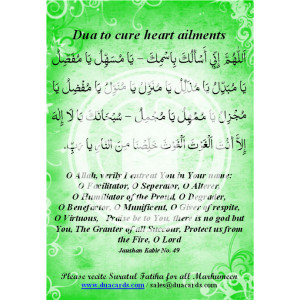 Dua to cure heart ailments
اَللّٰهُمَّ إِنِّي أَسْأَلُكَ بِاسْمِكَ – يَا مُسَهِّلُ يَا مُفَصِّلُ
يَا مُبَدِّلُ يَا مُذَلِّلُ يَا مُنَزِّلُ يَا مُنَوِّلُ يَا مُفْضِلُ يَا
مُجْزِلُ يَا مُمْهِلُ يَا مُجْمِلُ – سُبْحَانَكَ يَا لَا إِلٰهَ
إِلَّا أَنْتَ الْغَوْثَ الْغَوْثَ خَلِّصْنَا مِنَ النَّاسِ يَا رَبِّ.
O Allah, verily I entreat You in Your name:
O Facilitator, O Seperator, O Alterer,
O Humiliator of the Proud, O Degrader,
O Benefactor, O Munificent, O Giver of respite,
O Virtuous, Praise be to You, there is no god but
You, The Granter of all Succour, Protect us from
the Fire, O Lord
Jaushan Kabir No. 49
Please recite Suratul Fatiha for all Marhumeen
www.duacards.com / sales@duacards.com